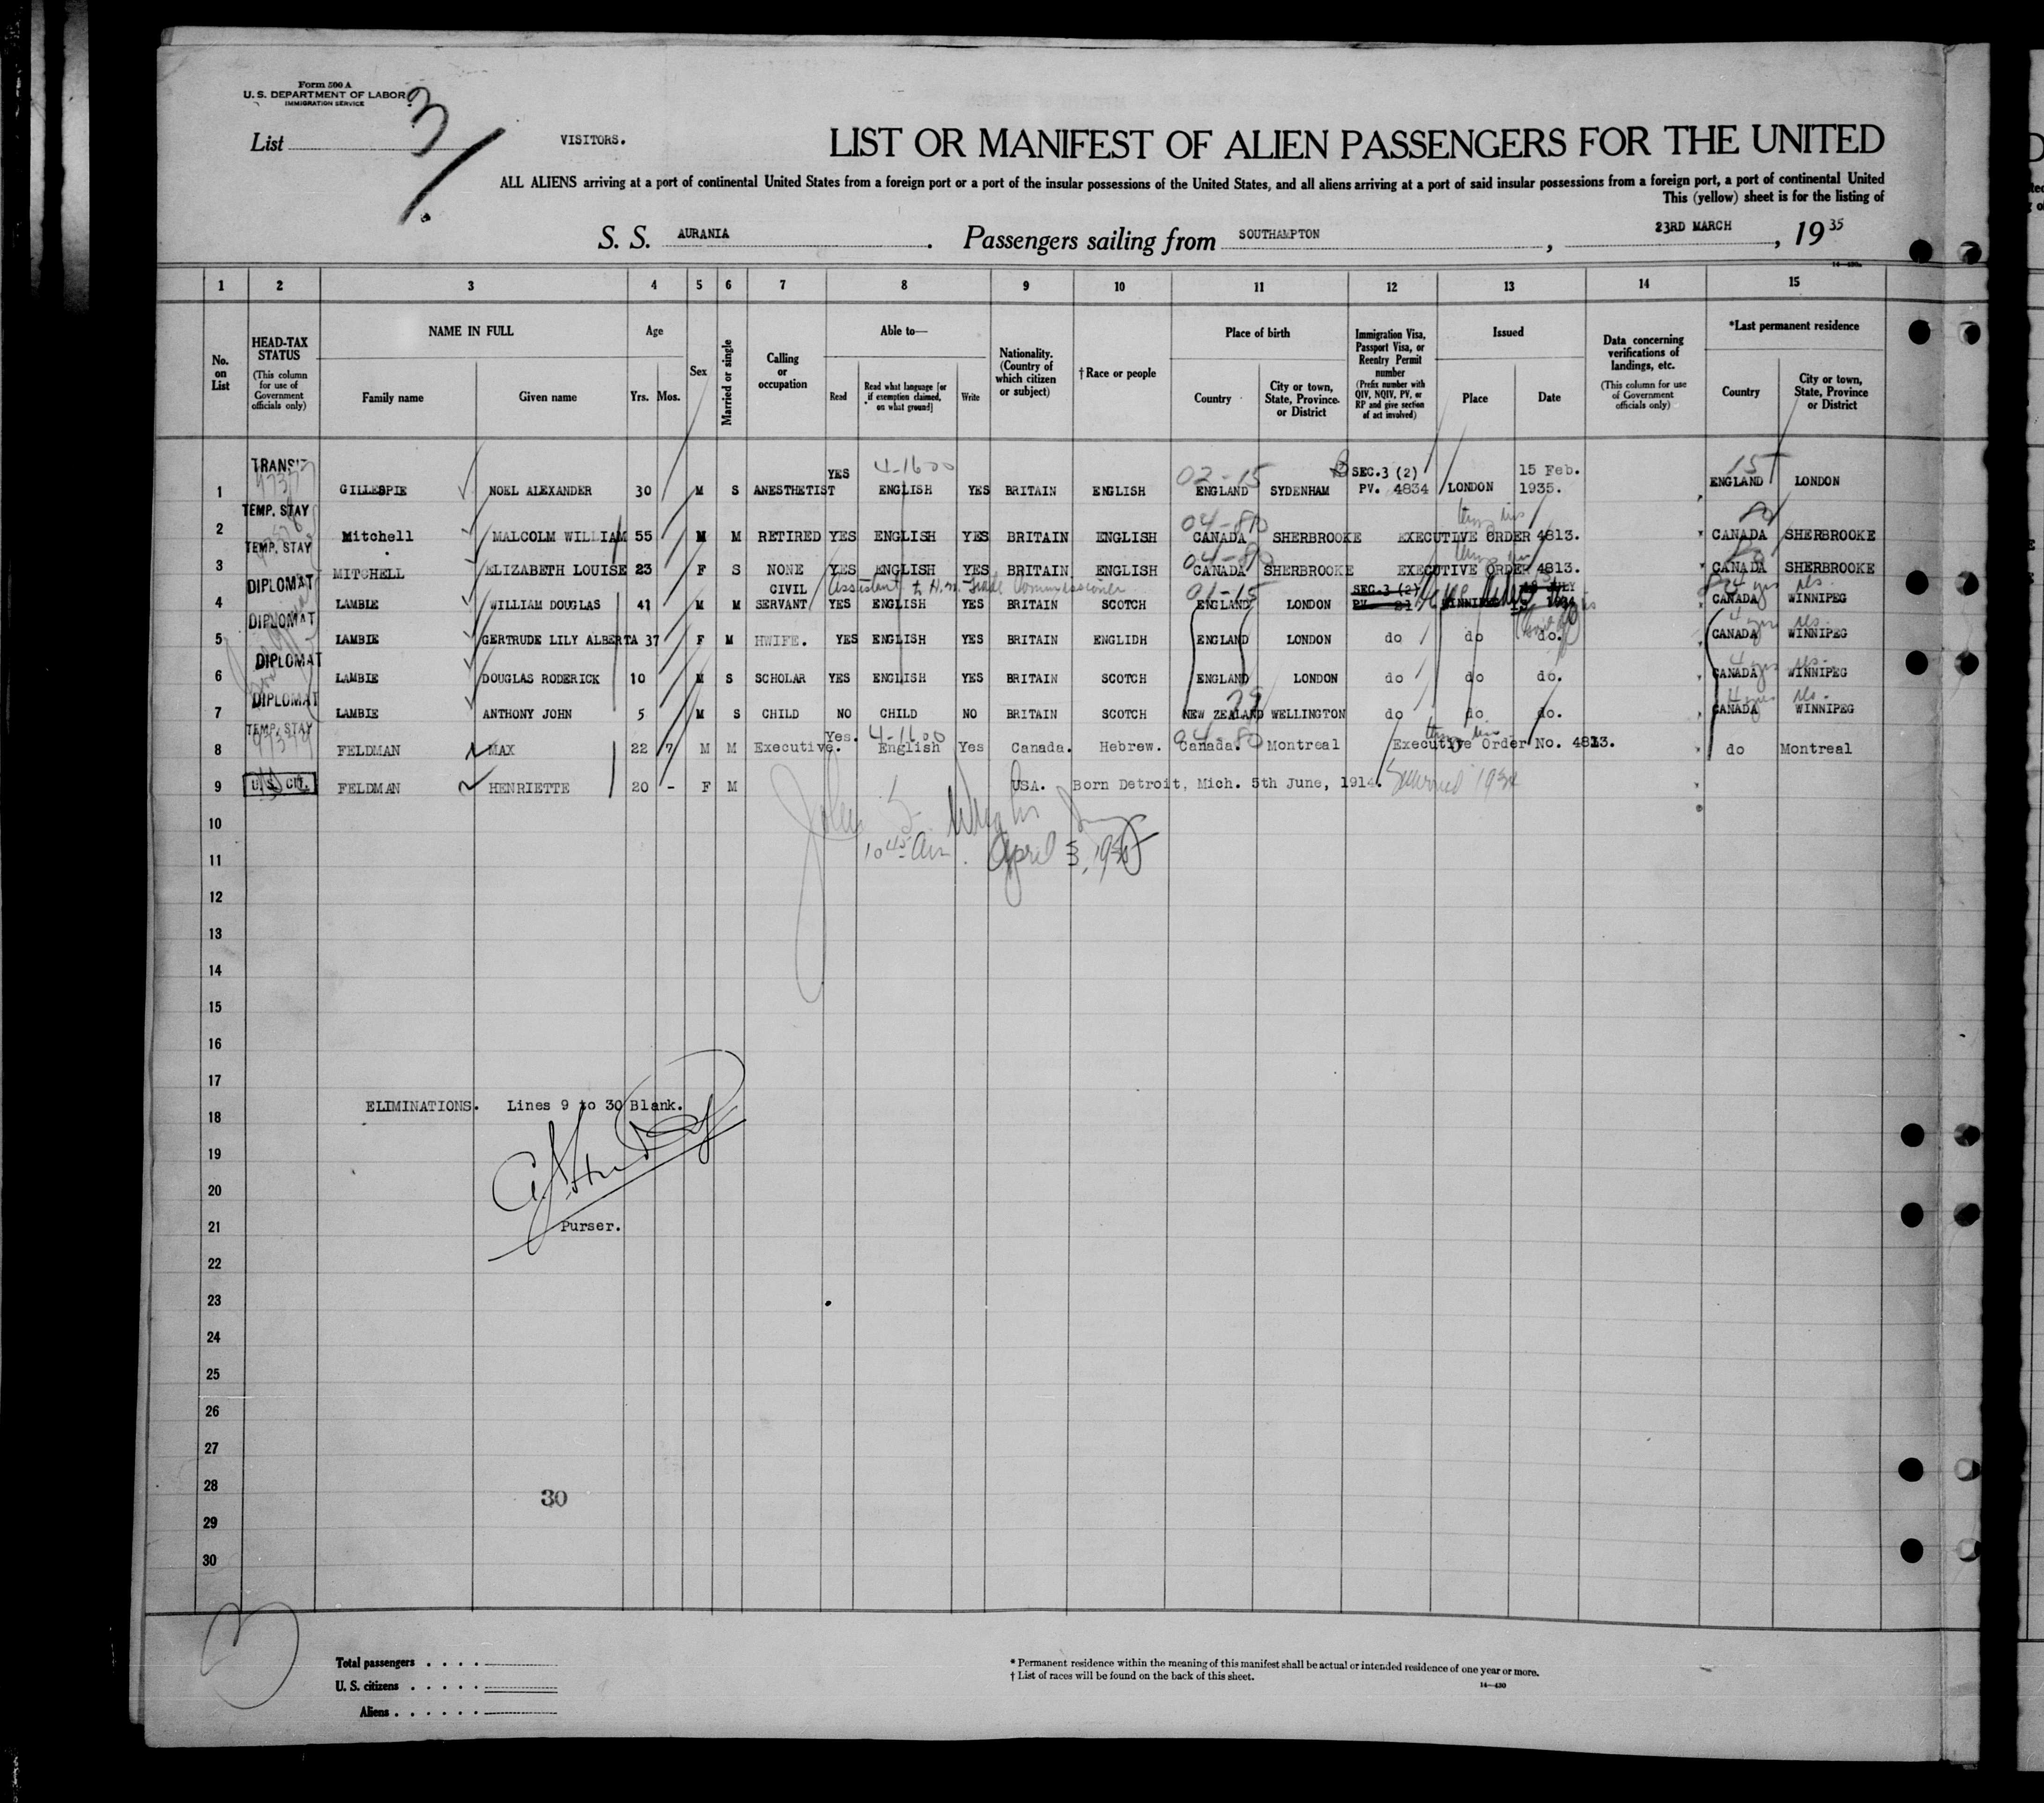 Form 500 A
U. S. DEPARTMENT OF LABOR
IMMIGRATION SERVICE
List 3
VISITORS.
LIST OR MANIFEST OF ALIEN PASSENGERS FOR THE UNITED
ALL ALIENS arriving at a port of continental United States from a foreign port or a port of the insular possessions of the United States, and all aliens arriving at a port of said insular possessions from a foreign port, a port of continental United
This (yellow) sheet is for the listing of
S. S. AURANIA. Passengers sailing from SOUTHAMPTON, 23RD MARCH, 19 35
14-430a
1 2 3 4 5 6 7 8 9 10 11 12 13 14 15
No. on List
HEAD-TAX STATUS (This column for use of Government officials only)
NAME IN FULL
Family name Given name
Age
Yrs. Mos.
Sex
Married or single
Calling or occupation
Able to—
Read Read what language [or if exemption claimed, on what ground] Write
Nationality. (Country of which citizen or subject)
†Race or people
Place of birth
Country City or town, State, Province or District
Immigration Visa, Passport Visa, or Reentry Permit number (Prefix number with QIV, NQIV, PV, or RP and give section of act involved)
Issued
Place Date
Data concerning verifications of landings, etc. (This column for use of Government officials only)
*Last permanent residence
Country City or town, State, Province or District
TRANSIT YES 4-1600 02-15 SEC.3 (2) 15 Feb. 15
1 GILLESPIE NOEL ALEXANDER 30 M S ANESTHETIST ENGLISH YES BRITAIN ENGLISH ENGLAND SYDENHAM PV. 4834 LONDON 1935. ENGLAND LONDON
TEMP. STAY 04-80
2 Mitchell MALCOLM WILLIAM 55 M M RETIRED YES ENGLISH YES BRITAIN ENGLISH CANADA SHERBROOKE EXECUTIVE ORDER 4813. CANADA SHERBROOKE
TEMP. STAY 04-80
3 MITCHELL ELIZABETH LOUISE 23 F S NONE YES ENGLISH YES BRITAIN ENGLISH CANADA SHERBROOKE EXECUTIVE ORDER 4813. CANADA SHERBROOKE
DIPLOMAT CIVIL Assistant to H.M. Trade Commissioner 01-15 SEC.3 (2) JULY 4 yrs res.
4 LAMBIE WILLIAM DOUGLAS 41 M M SERVANT YES ENGLISH YES BRITAIN SCOTCH ENGLAND LONDON PV. WINNIPEG 1934 CANADA WINNIPEG
DIPLOMAT 4 yrs res.
5 LAMBIE GERTRUDE LILY ALBERTA 37 F M HWIFE. YES ENGLISH YES BRITAIN ENGLIDH ENGLAND LONDON do do do. CANADA WINNIPEG
DIPLOMAT 4 yrs res.
6 LAMBIE DOUGLAS RODERICK 10 M S SCHOLAR YES ENGLISH YES BRITAIN SCOTCH ENGLAND LONDON do do do. CANADA WINNIPEG
DIPLOMAT 4 yrs res.
7 LAMBIE ANTHONY JOHN 5 M S CHILD NO CHILD NO BRITAIN SCOTCH NEW ZEALAND WELLINGTON do do do. CANADA WINNIPEG
TEMP. STAY Yes. 4-1600 04-80
8 FELDMAN MAX 22 7 M M Executive. English Yes Canada. Hebrew. Canada. Montreal Executive Order No. 4813. do Montreal
9 U.S. CIT. FELDMAN HENRIETTE 20 - F M USA. Born Detroit, Mich. 5th June, 1914. married 1934
10
10 45 am. April 3, 1935
11
12
13
14
15
16
17
ELIMINATIONS. Lines 9 to 30 Blank.
18
19
20
21
Purser.
22
23
24
25
26
27
28
30
29
30
3
Total passengers . . . .
U. S. citizens . . . . .
Aliens . . . . . .
* Permanent residence within the meaning of this manifest shall be actual or intended residence of one year or more.
† List of races will be found on the back of this sheet.
14—430